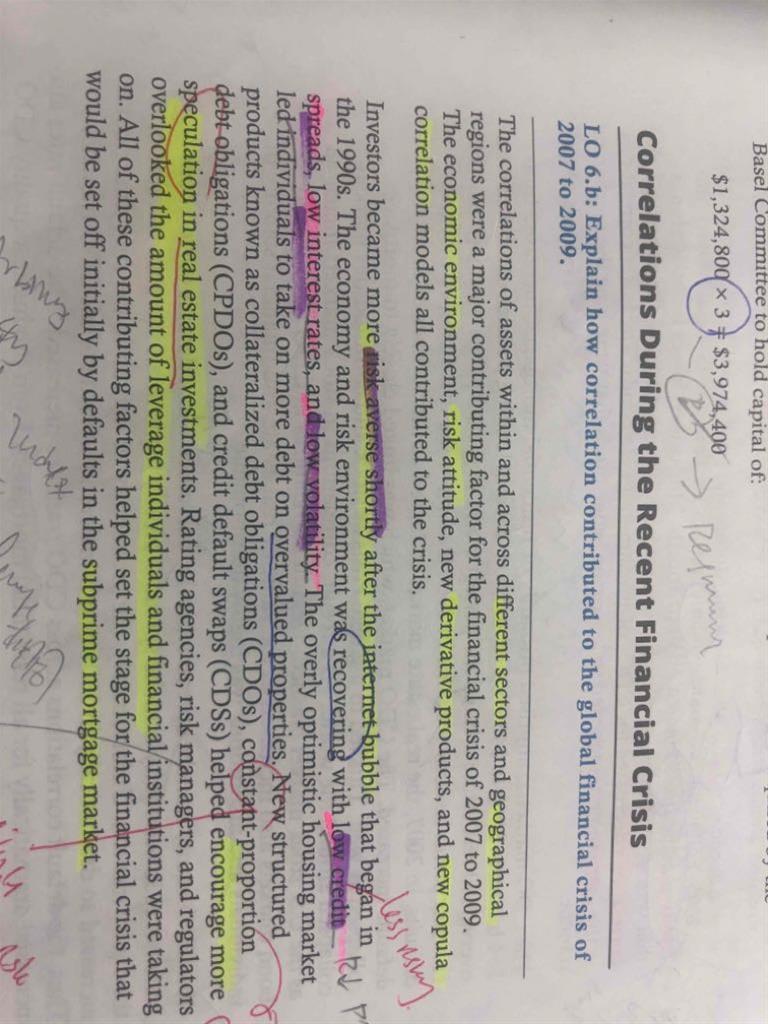 Basel Committee to hold capital of:
$1,324,800 × 3 = $3,974,400
Correlations During the Recent Financial Crisis
LO 6.b: Explain how correlation contributed to the global financial crisis of
2007 to 2009.
The correlations of assets within and across different sectors and geographical
regions were a major contributing factor for the financial crisis of 2007 to 2009.
The economic environment, risk attitude, new derivative products, and new copula
correlation models all contributed to the crisis.
Investors became more risk averse shortly after the internet bubble that began in
the 1990s. The economy and risk environment was recovering with low credit
spreads, low interest rates, and low volatility. The overly optimistic housing market
led individuals to take on more debt on overvalued properties. New structured
products known as collateralized debt obligations (CDOs), constant-proportion
debt obligations (CPDOs), and credit default swaps (CDSs) helped encourage more
speculation in real estate investments. Rating agencies, risk managers, and regulators
overlooked the amount of leverage individuals and financial institutions were taking
on. All of these contributing factors helped set the stage for the financial crisis that
would be set off initially by defaults in the subprime mortgage market.